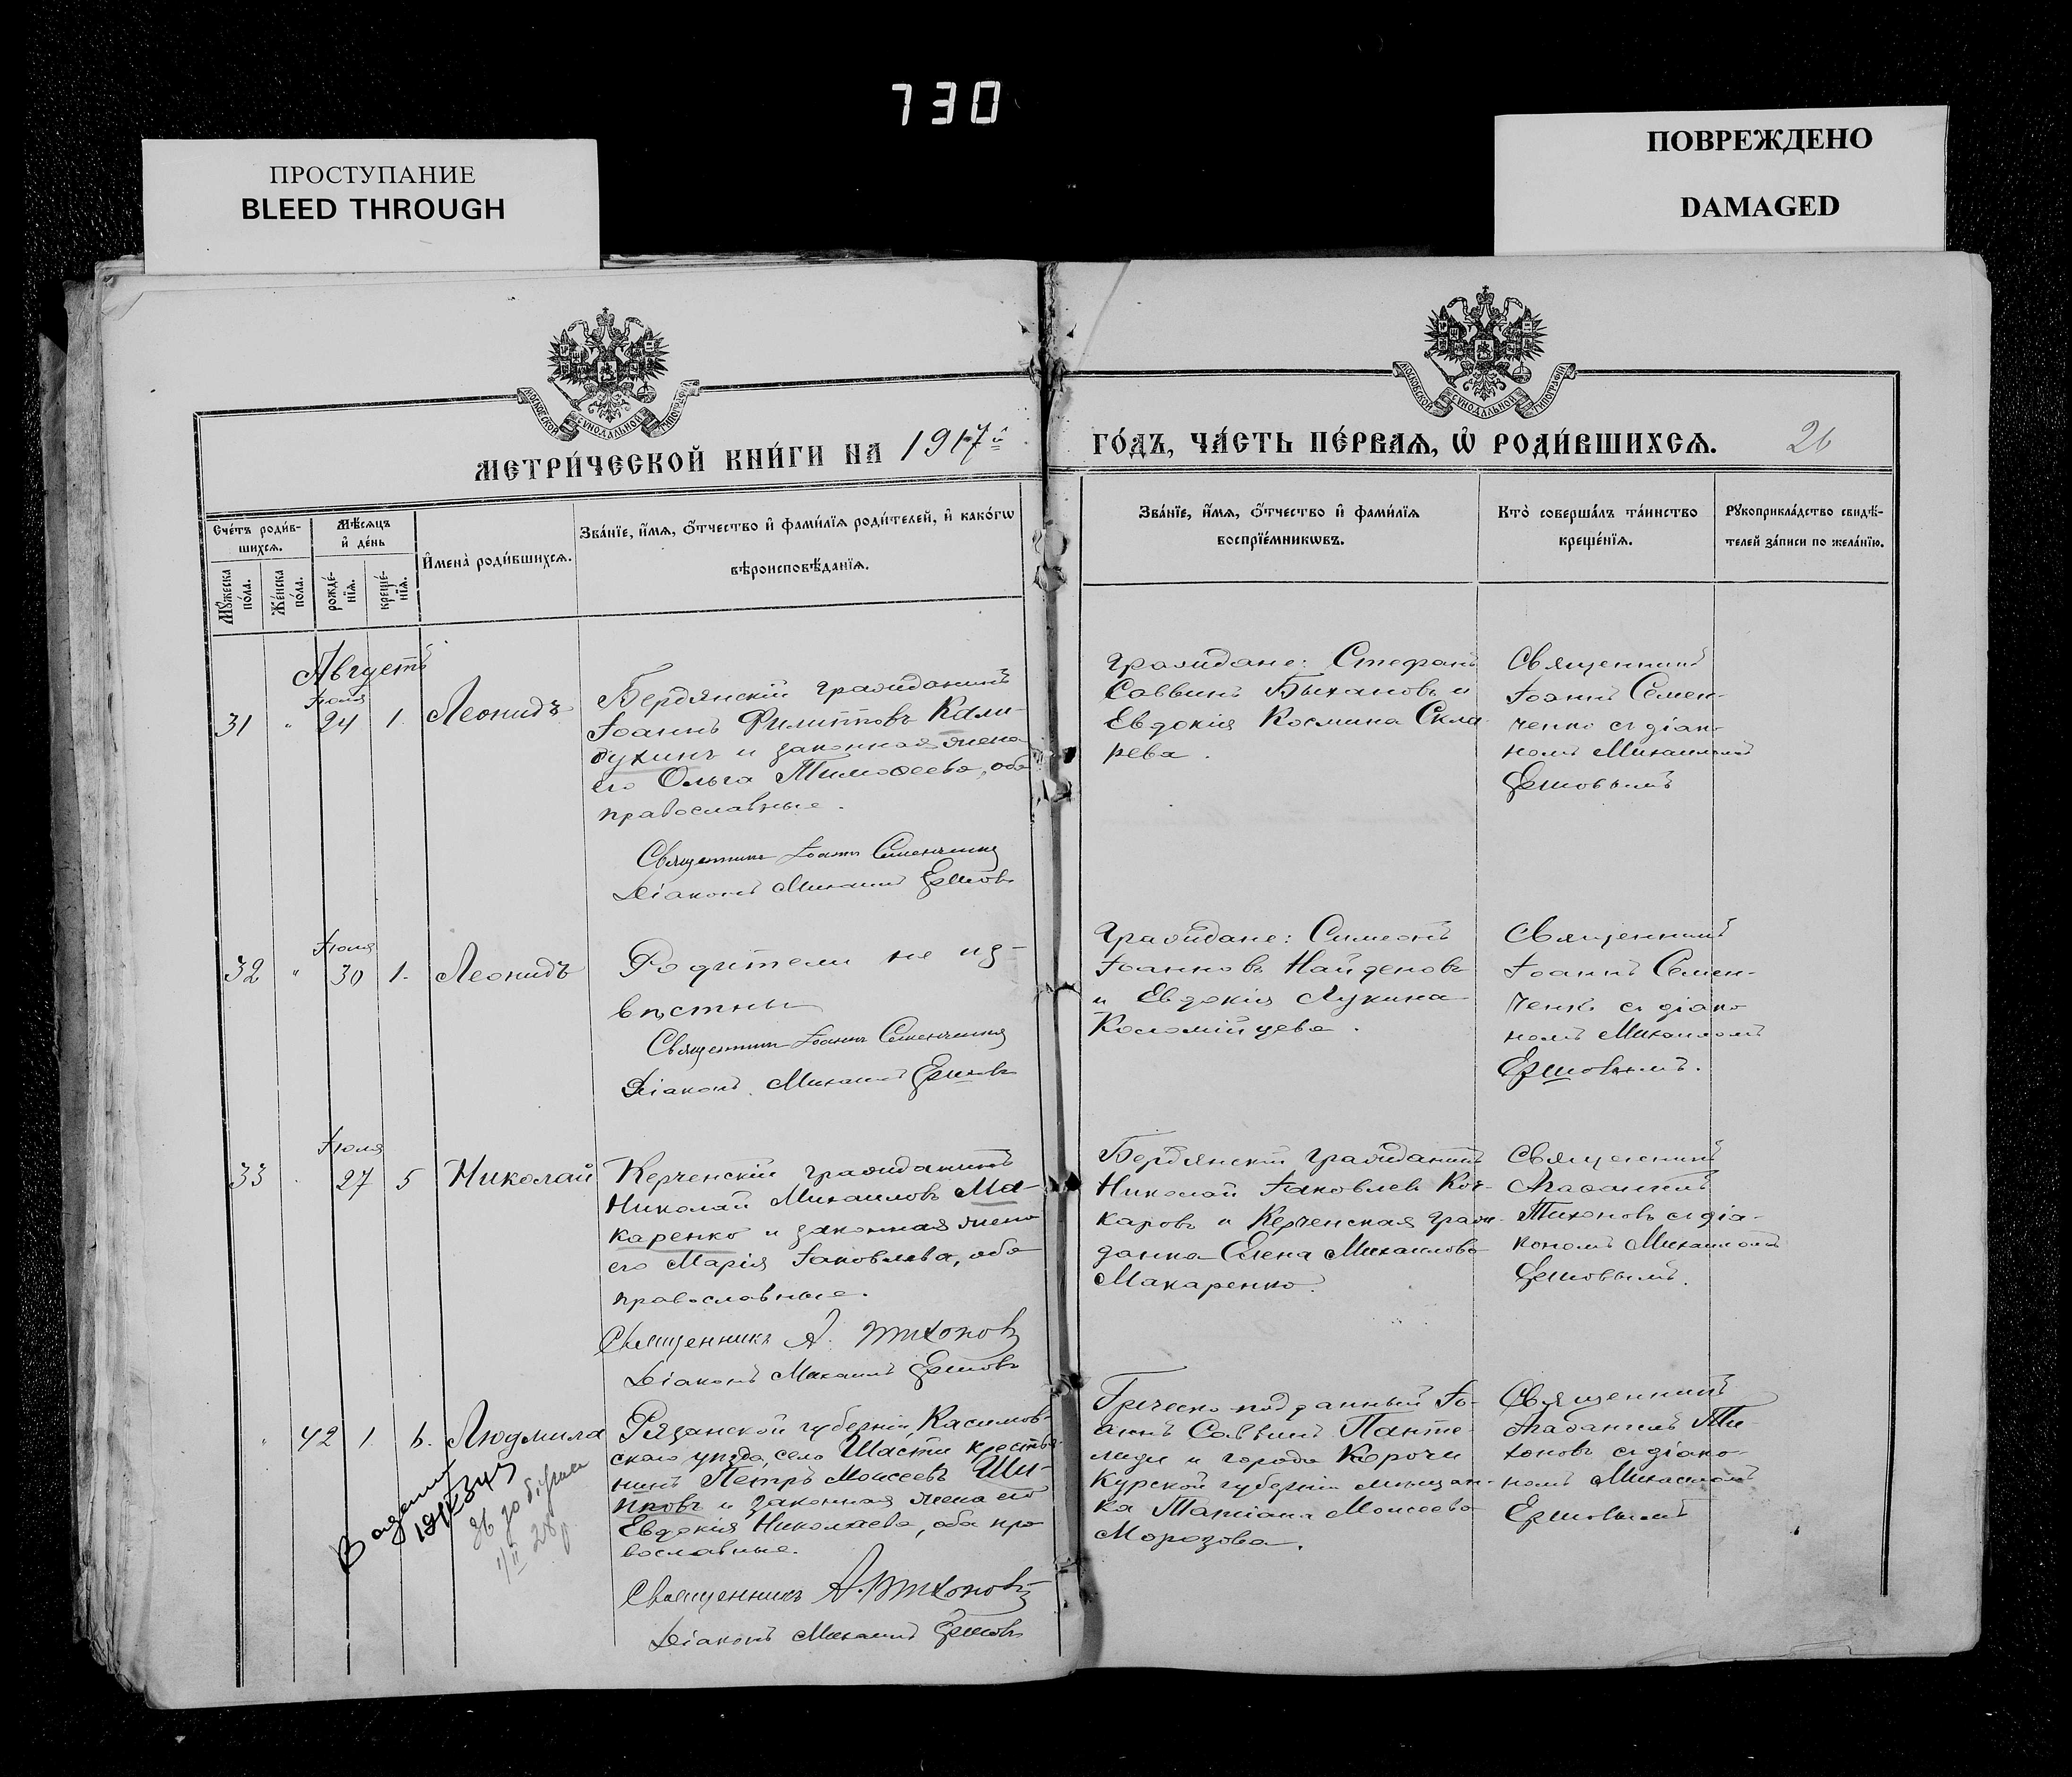 730
ПРОСТУПАНИЕ
BLEED THROUGH
ПОВРЕЖДЕНО
DAMAGED
МОСКОВСКОЙ СУНОДАЛЬНОЙ ТИПОГРАФІИ
МОСКОВСКОЙ СУНОДАЛЬНОЙ ТИПОГРАФІИ
МЕТРИ́ЧЕСКОЙ КНИ́ГИ НА 1917й
ГО́ДЪ, ЧА́СТЬ ПЕ́РВАѦ, Ѡ҆ РОДИ́ВШИХСѦ. 26
Сче́тъ роди́в-
шихсѧ.
Мѣ́сяцъ
и҆ де́нь
И҆мена̀ роди́вшихсѧ.
Зва́нїе, и҆́мѧ, ѻ҆́тчество и҆ фами́лїѧ роди́телей, и҆ како́гѡ
вѣроисповѣ́данїѧ.
Мꙋ́жеска
по́ла.
Же́нска
по́ла.
рожде́-
нїѧ.
креще́-
нїѧ.
Зва́нїе, и҆́мѧ, ѻ҆́тчество и҆ фами́лїѧ
воспрїе́мникѡвъ.
Кто̀ соверша́лъ та́инство
креще́нїѧ.
Рꙋкоприкла́дство свидѣ́-
телей за́писи по жела́нїю.
Августъ
Іюля
31 " 24 1. Леонидъ
Бердянскій гражданинъ
Іоаннъ Филипповъ Кали-
бухинъ и законная жена
его Ольга Тимоѳеева, оба
православные.
Священникъ Іоаннъ Семенченко
Діаконъ Михаилъ Ершовъ
Граждане: Стефанъ
Саввинъ Быхановъ и
Евдокія Космина Скля-
рева.
Священникъ
Іоаннъ Семен-
ченко съ діако-
номъ Михаиломъ
Ершовымъ
Іюля
32 " 30 1. Леонидъ
Родители не из-
вѣстны
Священникъ Іоаннъ Семенченко
Діаконъ Михаилъ Ершовъ
Граждане: Симеонъ
Іоанновъ Найденовъ
и Евдокія Лукина
Коломійцева.
Священникъ
Іоаннъ Семен-
ченко съ діако-
номъ Михаиломъ
Ершовымъ.
Іюля
33 . 27 5 Николай
Керченскій гражданинъ
Николай Михаиловъ Ма-
каренко и законная жена
его Марія Іаковлева, оба
православные.
Священникъ А. Тихоновъ
Діаконъ Михаилъ Ершовъ
Бердянскій гражданинъ
Николай Іаковлевъ Коч-
каровъ и Керченская граж-
данка Елена Михаилова
Макаренко.
Священникъ
Агаѳангелъ
Тихоновъ съ діа-
кономъ Михаиломъ
Ершовымъ.
" 42 1. 6. Людмила
Рязанской губерніи, Касимов-
скаго уѣзда, село Шасти крестья-
нинъ Петръ Моисеевъ Ши-
повъ и законная жена его
Евдокія Николаева, оба пра-
вославные.
Священникъ А. Тихоновъ
Діаконъ Михаилъ Ершовъ
Греческо-подданный Іо-
аннъ Саввинъ Панте-
лиди и города Корочи
Курской губерніи мѣщан-
ка Татіана Моисеева
Морозова.
Священникъ
Агаѳангелъ Ти-
хоновъ съ діако-
номъ Михаиломъ
Ершовымъ